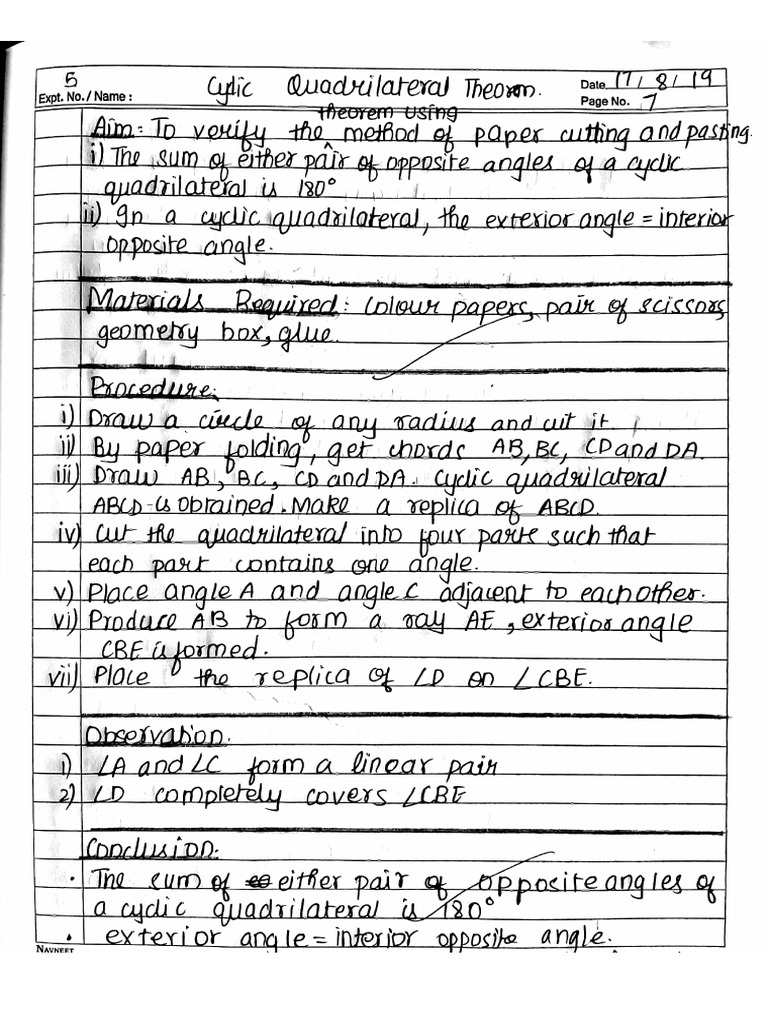 5 Cylic Quadrilateral Theorem. Date 17/8/19
Expt. No. / Name : Page No. 7
theorem using
Aim: To verify the method of paper cutting and pasting.
i) The sum of either pair of opposite angles of a cyclic
quadrilateral is 180°
ii) In a cyclic quadrilateral, the exterior angle = interior
opposite angle.
Materials Required: Colour papers, pair of scissors,
geometry box, glue.
Procedure:
i) Draw a circle of any radius and cut it
ii) By paper folding, get chords AB, BC, CD and DA.
iii) Draw AB, BC, CD and DA. Cyclic quadrilateral
ABCD is obtained. Make a replica of ABCD.
iv) Cut the quadrilateral into four parts such that
each part contains one angle.
v) Place angle A and angle C adjacent to each other.
vi) Produce AB to form a ray AE, exterior angle
CBE is formed.
vii) Place the replica of ∠D on ∠CBE.
Observation.
1) ∠A and ∠C form a linear pair
2) ∠D completely covers ∠CBE
Conclusion:
• The sum of either pair of opposite angles of
a cyclic quadrilateral is 180°
• exterior angle = interior opposite angle.
NAVNEET